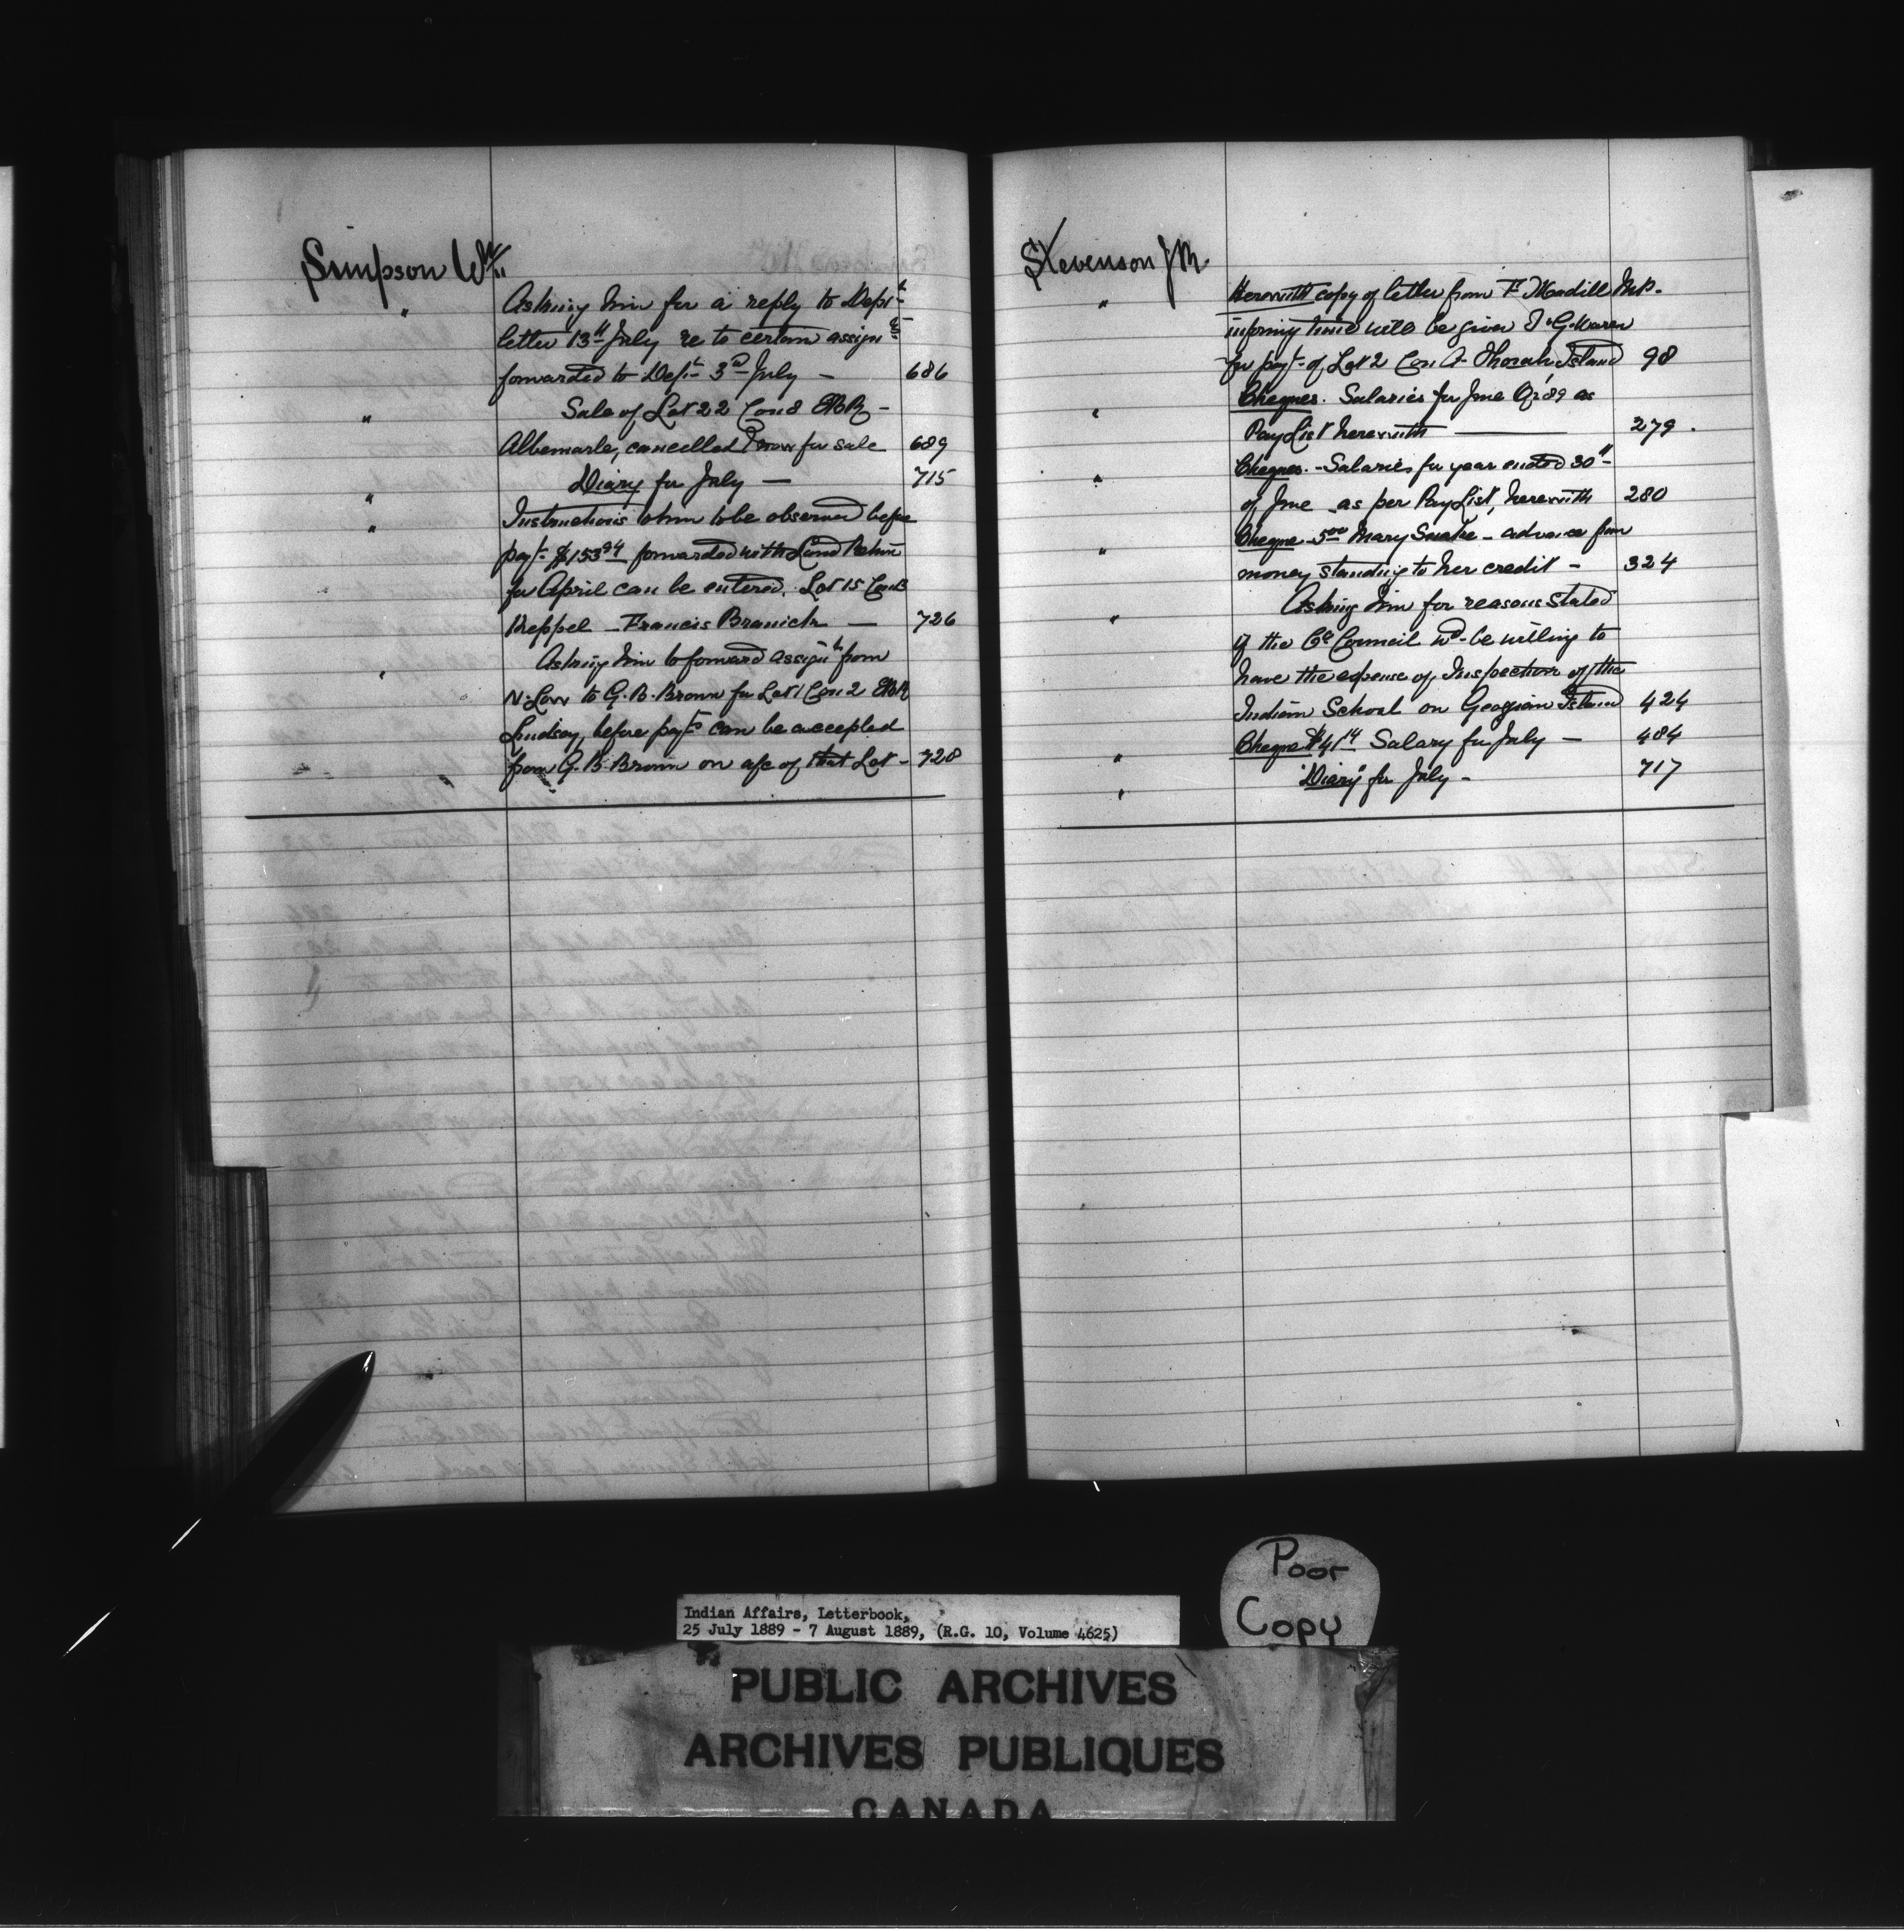 Simpson Wm
" Asking him for a reply to Dept
letter 13th July re to certain assignts
forwarded to Dept 3rd July — 686
" Sale of Lot 22 Con 8 EBR —
Albemarle, cancelled & now for sale 689
" Diary for July — 715
" Instructions to him to be observed before
payt $153.94 forwarded with Land Return
for April can be entered. Lot 15 Con B
Keppel — Francis Branich — 726
" Asking him to forward assignt from
N. Low to G. B. Brown for Lot 1 Con 2 EBR
Lindsay, before payts can be accepted
from G. B. Brown on a/c of that Lot — 728
Stevenson J M.
" Herewith copy of letter from F. Madill M.P.
informg time will be given
for payt of Lot 2 Con A Thorah Island 98
" Cheques. Salaries for June Qr '89 as
Pay List herewith — 279.
" Cheques. — Salaries for year ended 30th
of June as per Pay List, herewith 280
" Cheque — 5.00 Mary Snake — advance from
money standing to her credit — 324
" Asking him for reasons stated
if the Council wd be willing to
have the expense of Inspection of the
Indian School on Georgian Island 424
" Cheque $41.14 Salary for July — 484
" "Diary" for July — 717
Poor
Copy
Indian Affairs, Letterbook,
25 July 1889 - 7 August 1889, (R.G. 10, Volume 4625)
PUBLIC ARCHIVES
ARCHIVES PUBLIQUES
CANADA